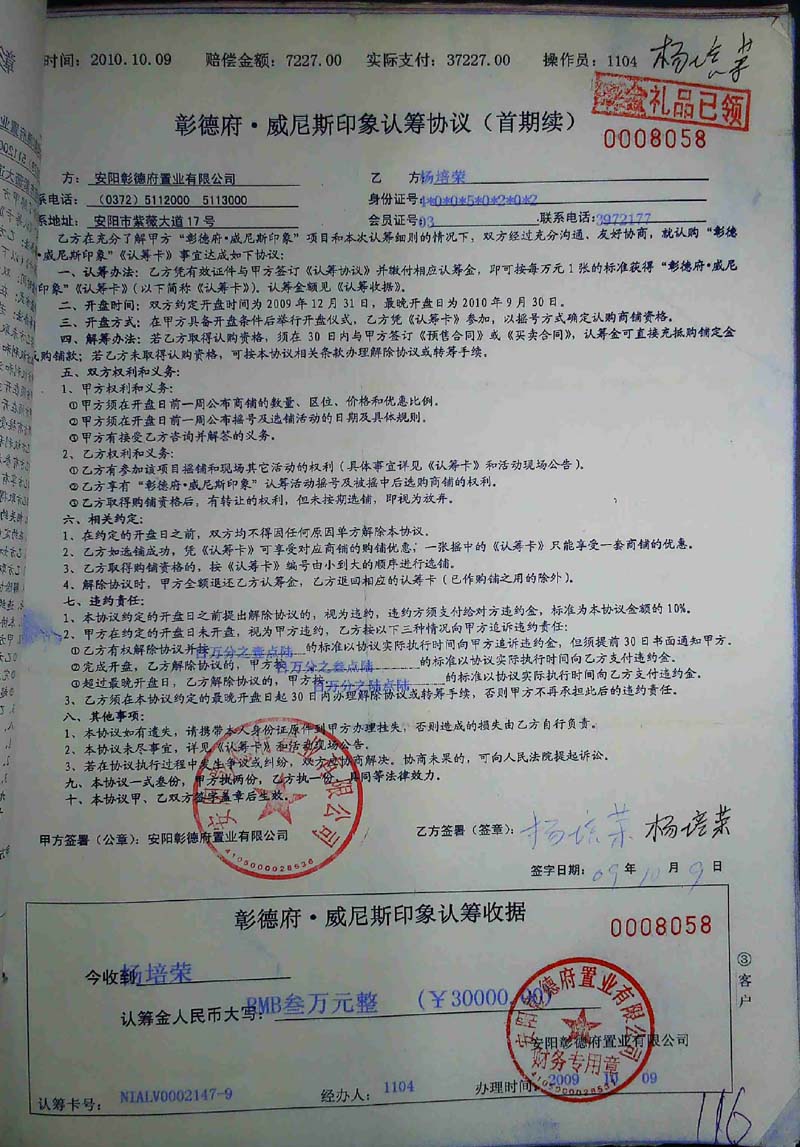 时间：2010.10.09 赔偿金额：7227.00 实际支付：37227.00 操作员：1104 杨培荣
礼品已领
彰德府·威尼斯印象认筹协议（首期续）
0008058
方：安阳彰德府置业有限公司 乙 方：杨培荣
系电话：（0372）5112000 5113000 身份证号：4*0*0*5*0*2*0*2
系地址：安阳市紫薇大道17号 会员证号：03 .联系电话：3972177
乙方在充分了解甲方“彰德府·威尼斯印象”项目和本次认筹细则的情况下，双方经过充分沟通、友好协商，就认购“彰德
·威尼斯印象”《认筹卡》事宜达成如下协议：
一、认筹办法：乙方凭有效证件与甲方签订《认筹协议》并缴付相应认筹金，即可按每万元1张的标准获得“彰德府·威尼
印象”《认筹卡》（以下简称《认筹卡》）。认筹金额见《认筹收据》。
二、开盘时间：双方约定开盘时间为2009年12月31日，最晚开盘日为2010年9月30日。
三、开盘方式：在甲方具备开盘条件后举行开盘仪式，乙方凭《认筹卡》参加，以摇号方式确定认购商铺资格。
四、解筹办法：若乙方取得认购资格，须在30日内与甲方签订《预售合同》或《买卖合同》，认筹金可直接充抵购铺定金
购铺款；若乙方未取得认购资格，可按本协议相关条款办理解除协议或转筹手续。
五、双方权利和义务：
1、甲方权利和义务：
①甲方须在开盘日前一周公布商铺的数量、区位、价格和优惠比例。
②甲方须在开盘日前一周公布摇号及选铺活动的日期及具体规则。
③甲方有接受乙方咨询并解答的义务。
2、乙方权利和义务：
①乙方有参加该项目摇铺和现场其它活动的权利（具体事宜详见《认筹卡》和活动现场公告）。
②乙方享有“彰德府·威尼斯印象”认筹活动摇号及被摇中后选购商铺的权利。
③乙方取得购铺资格后，有转让的权利，但未按期选铺，即视为放弃。
六、相关约定：
1、在约定的开盘日之前，双方均不得因任何原因单方解除本协议。
2、乙方如选铺成功，凭《认筹卡》可享受对应商铺的购铺优惠，一张摇中的《认筹卡》只能享受一套商铺的优惠。
3、乙方取得购铺资格的，按《认筹卡》编号由小到大的顺序进行选铺。
4、解除协议时，甲方全额退还乙方认筹金，乙方退回相应的认筹卡（已作购铺之用的除外）。
七、违约责任：
1、本协议约定的开盘日之前提出解除协议的，视为违约，违约方须支付给对方违约金，标准为本协议金额的10%。
2、甲方在约定的开盘日未开盘，视为甲方违约，乙方按以下三种情况向甲方追诉违约责任：
①乙方有权解除协议并按百万分之叁点陆的标准以协议实际执行时间向甲方追诉违约金，但须提前30日书面通知甲方。
②完成开盘，乙方解除协议的，甲方按百万分之叁点陆的标准以协议实际执行时间向乙方支付违约金。
③超过最晚开盘日，乙方解除协议的，甲方按百万分之陆点陆的标准以协议实际执行时间向乙方支付违约金。
3、乙方须在本协议约定的最晚开盘日起30日内办理解除协议或转筹手续，否则甲方不再承担此后的违约责任。
八、其他事项：
1、本协议如有遗失，请携带本人身份证原件到甲方办理挂失，否则造成的损失由乙方自行负责。
2、本协议未尽事宜，详见《认筹卡》和活动现场公告。
3、若在协议执行过程中发生争议或纠纷，双方应协商解决。协商未果的，可向人民法院提起诉讼。
九、本协议一式叁份，甲方执两份，乙方执一份，具同等法律效力。
十、本协议甲、乙双方签字盖章后生效。
甲方签署（公章）：安阳彰德府置业有限公司 乙方签署（签章）：杨培荣 杨培荣
4105000028536
签字日期：09年10月9日
彰德府·威尼斯印象认筹收据
0008058
今收到杨培荣
认筹金人民币大写：RMB叁万元整 （￥30000.00）
安阳彰德府置业有限公司
财务专用章
安阳彰德府置业有限公司
认筹卡号：NIALV0002147-9 经办人：1104 办理时间：2009 10 09
③客户
116